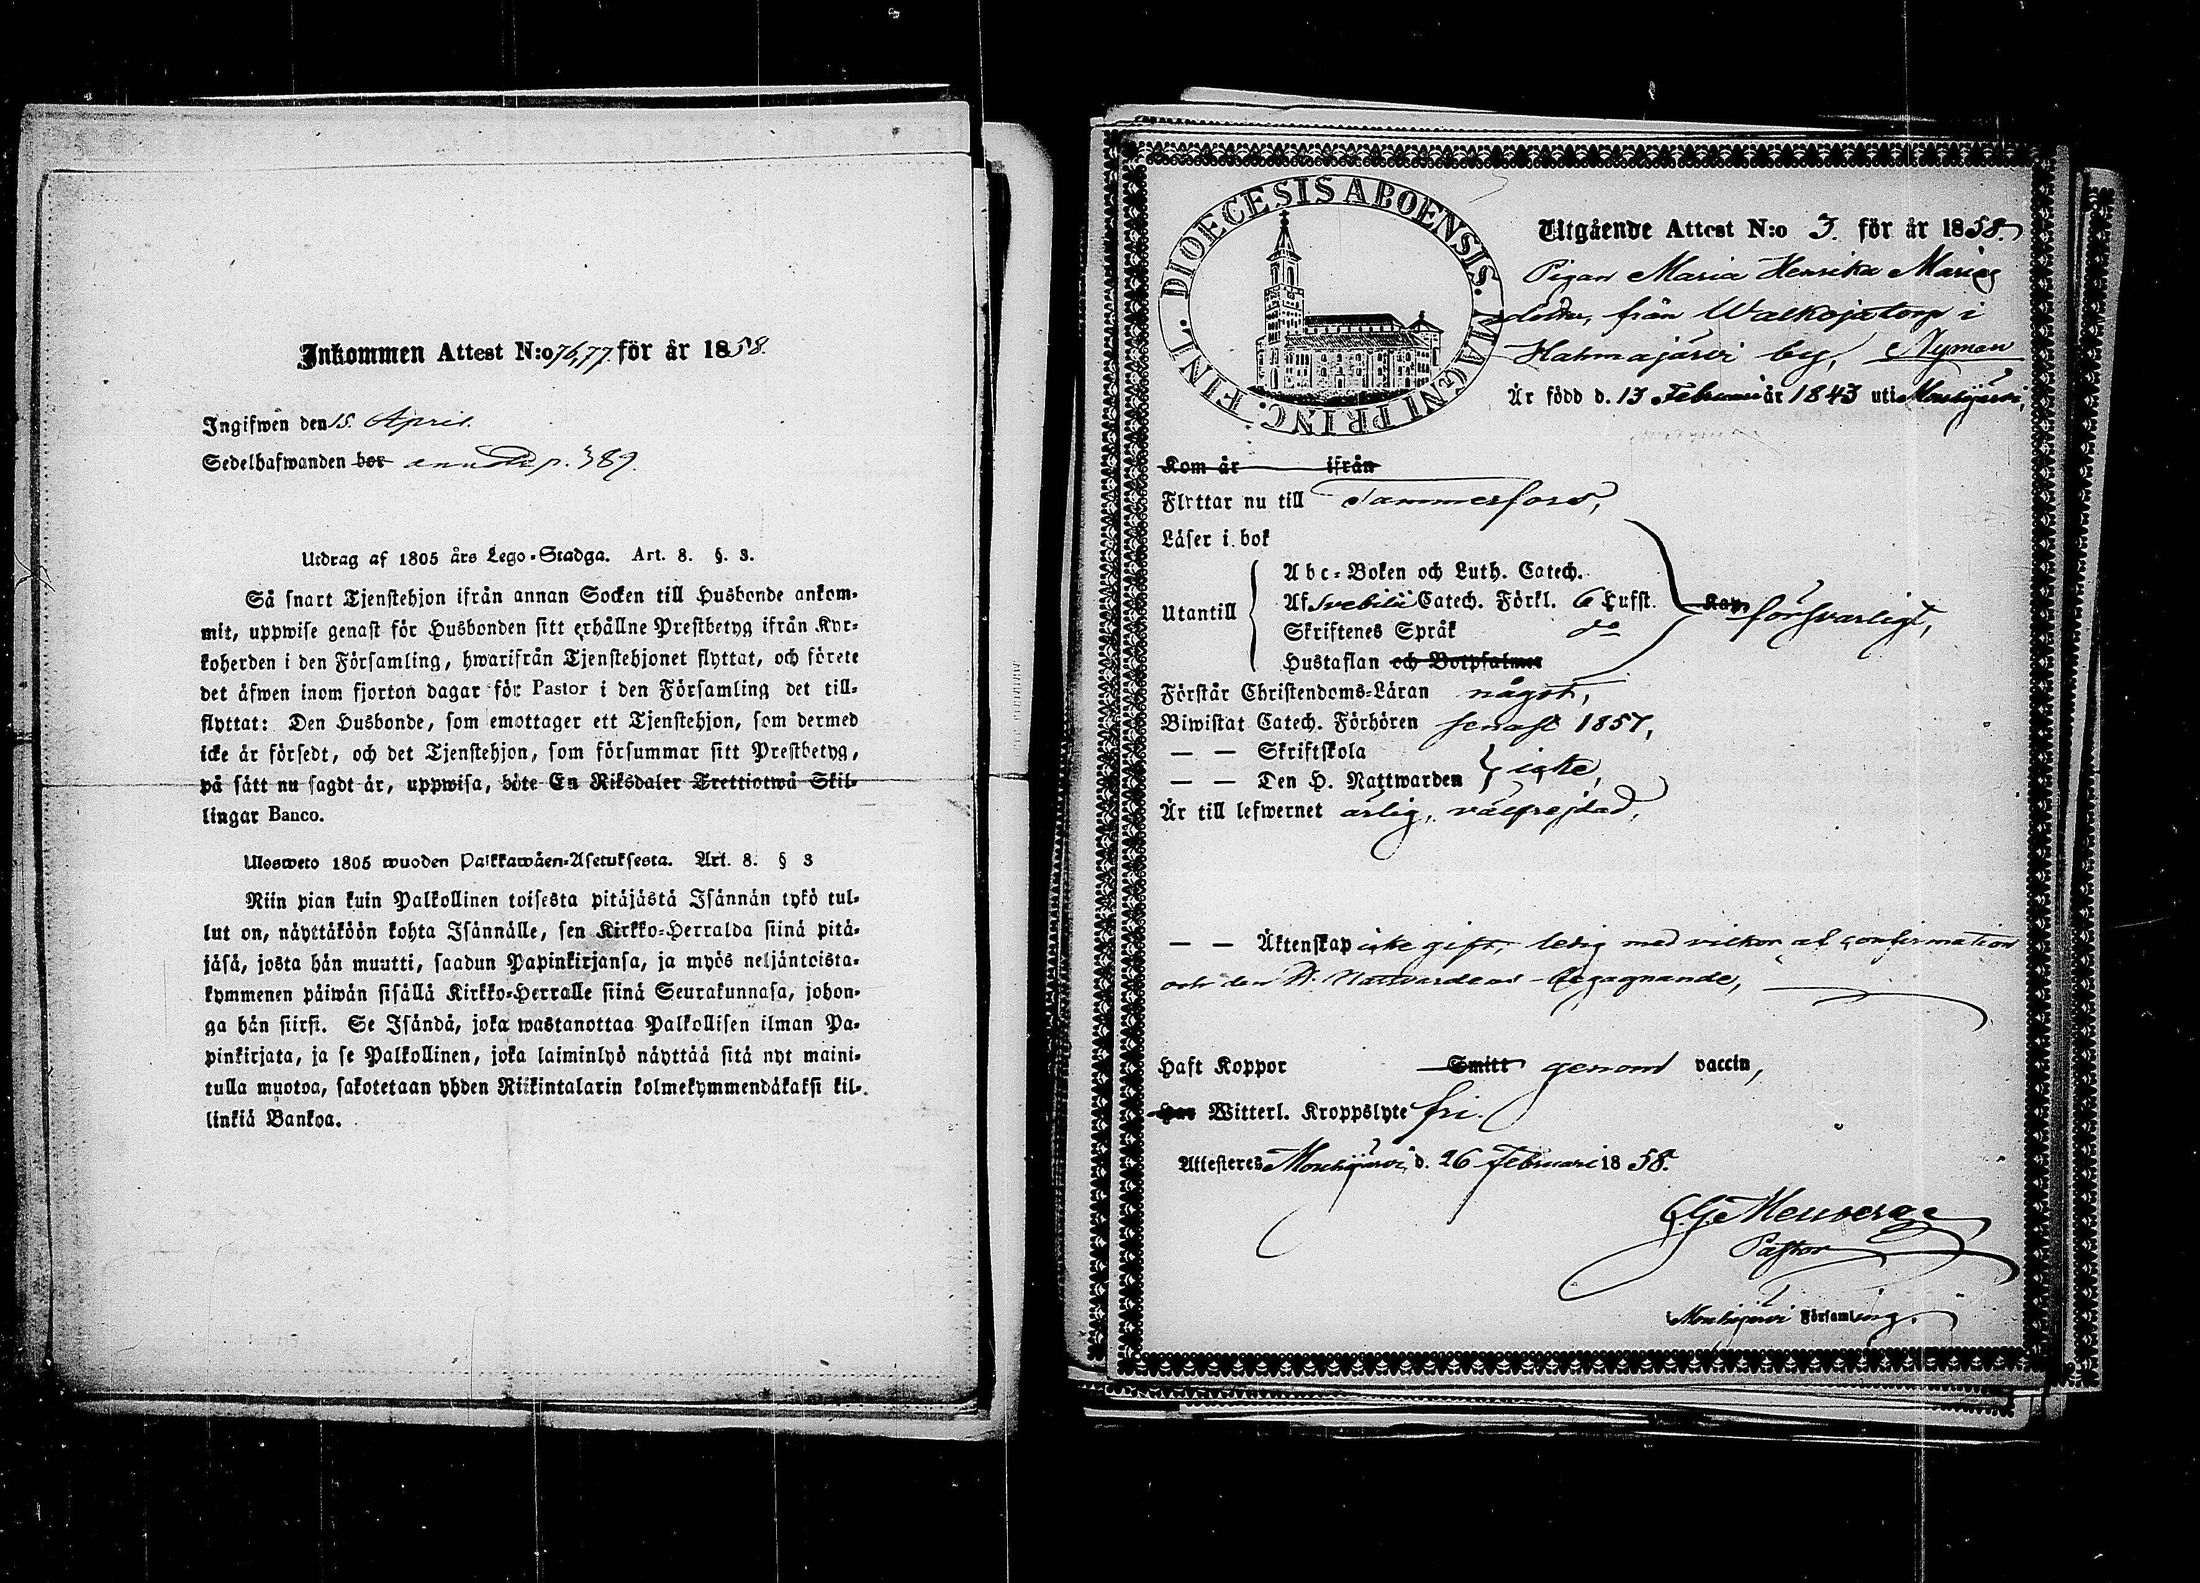 Inkommen Attest N:o 76,77 för år 1858.
Ingifwen den 15. April.
Sedelhafwanden bor p. 389.
Utdrag af 1805 års Lego-Stadga. Art. 8. §. 3.
Så snart Tjenstehjon ifrån annan Socken till Husbonde ankom-
mit, uppwise genast för Husbonden sitt erhållne Prestbetyg ifrån Kyr-
koherden i den Församling, hwarifrån Tjenstehjonet flyttat, och förete
det äfwen inom fjorton dagar för Pastor i den Församling det till-
flyttat: Den Husbonde, som emottager ett Tjenstehjon, som dermed
icke är försedt, och det Tjenstehjon, som försummar sitt Prestbetyg,
på sätt nu sagdt är, uppwisa, böte En Riksdaler Trettiotwå Skil-
lingar Banco.
Ulosweto 1805 wuoden Palkkawäen-Asetuksesta. Art. 8. § 3
Niin pian kuin Palkollinen toisesta pitäjästä Isännän tykö tul-
lut on, näyttäköön kohta Isännälle, sen Kirkko-Herralda siinä pitä-
jäsä, josta hän muutti, saadun Papinkirjansa, ja myös neljäntoista-
kymmenen päiwän sisällä Kirkko-Herralle siinä Seurakunnasa, johon-
ga hän siirsi. Se Isändä, joka wastanottaa Palkollisen ilman Pa-
pinkirjata, ja se Palkollinen, joka laiminlyö näyttää sitä nyt maini-
tulla muotoa, sakotetaan yhden Riikintalarin kolmekymmendäkaksi kil-
linkiä Bankoa.
DIOECESIS ABOENSIS. MAGNI PRINC. FINL.
Utgående Attest N:o 3. för år 1858.
Pigan Maria Henrika Mariæ
dotter, från Walkojatorp i
Hahmajärvi by, Nyman
Är född d. 13 Februari år 1843 uti Mouhijärvi,
Kom år ifrån
Flyttar nu till Tammerfors,
Läser i bok
Utantill
Abc-Boken och Luth. Catech.
Af Svebilii Catech. Förkl. 6 Hufst.
Skriftenes Språk do
Hustaflan och Botpsalmer
försvarligt,
Förstår Christendoms-Läran något,
Biwistat Catech. Förhören senast 1857,
— — Skriftskola
— — Den H. Nattwarden icke,
Är till lefwernet ärlig, välfrejdad,
— — Äktenskap icke gift, ledig med vilkor af confirmation
och den H. Nattvardens begagnande,
Haft Koppor Smitt genom vaccin,
Har Witterl. Kroppslyte fri.
Attesteres Mouhijärvi d. 26 Februari 1858.
Pastor
i Mouhijärvi Församling.